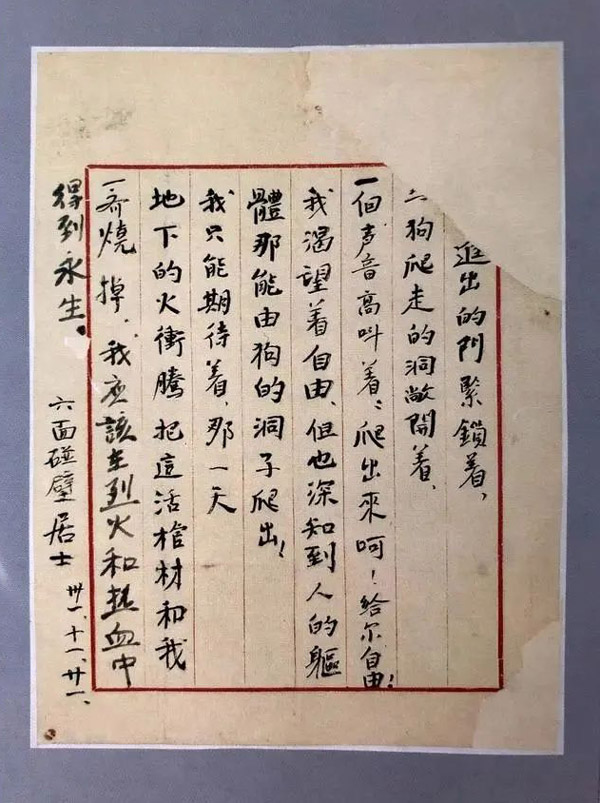 進出的门緊鎖着、
狗爬走的洞敞開着、
一個声音高叫着：爬出來呵！給尔自由！
我渴望着自由、但也深知到人的軀
體那能由狗的洞子爬出！
我只能期待着，那一天
地下的火衝騰把這活棺材和我
一齐燒掉、我应該在烈火和热血中
得到永生。
六面碰壁居士 卅一、十一、廿一、